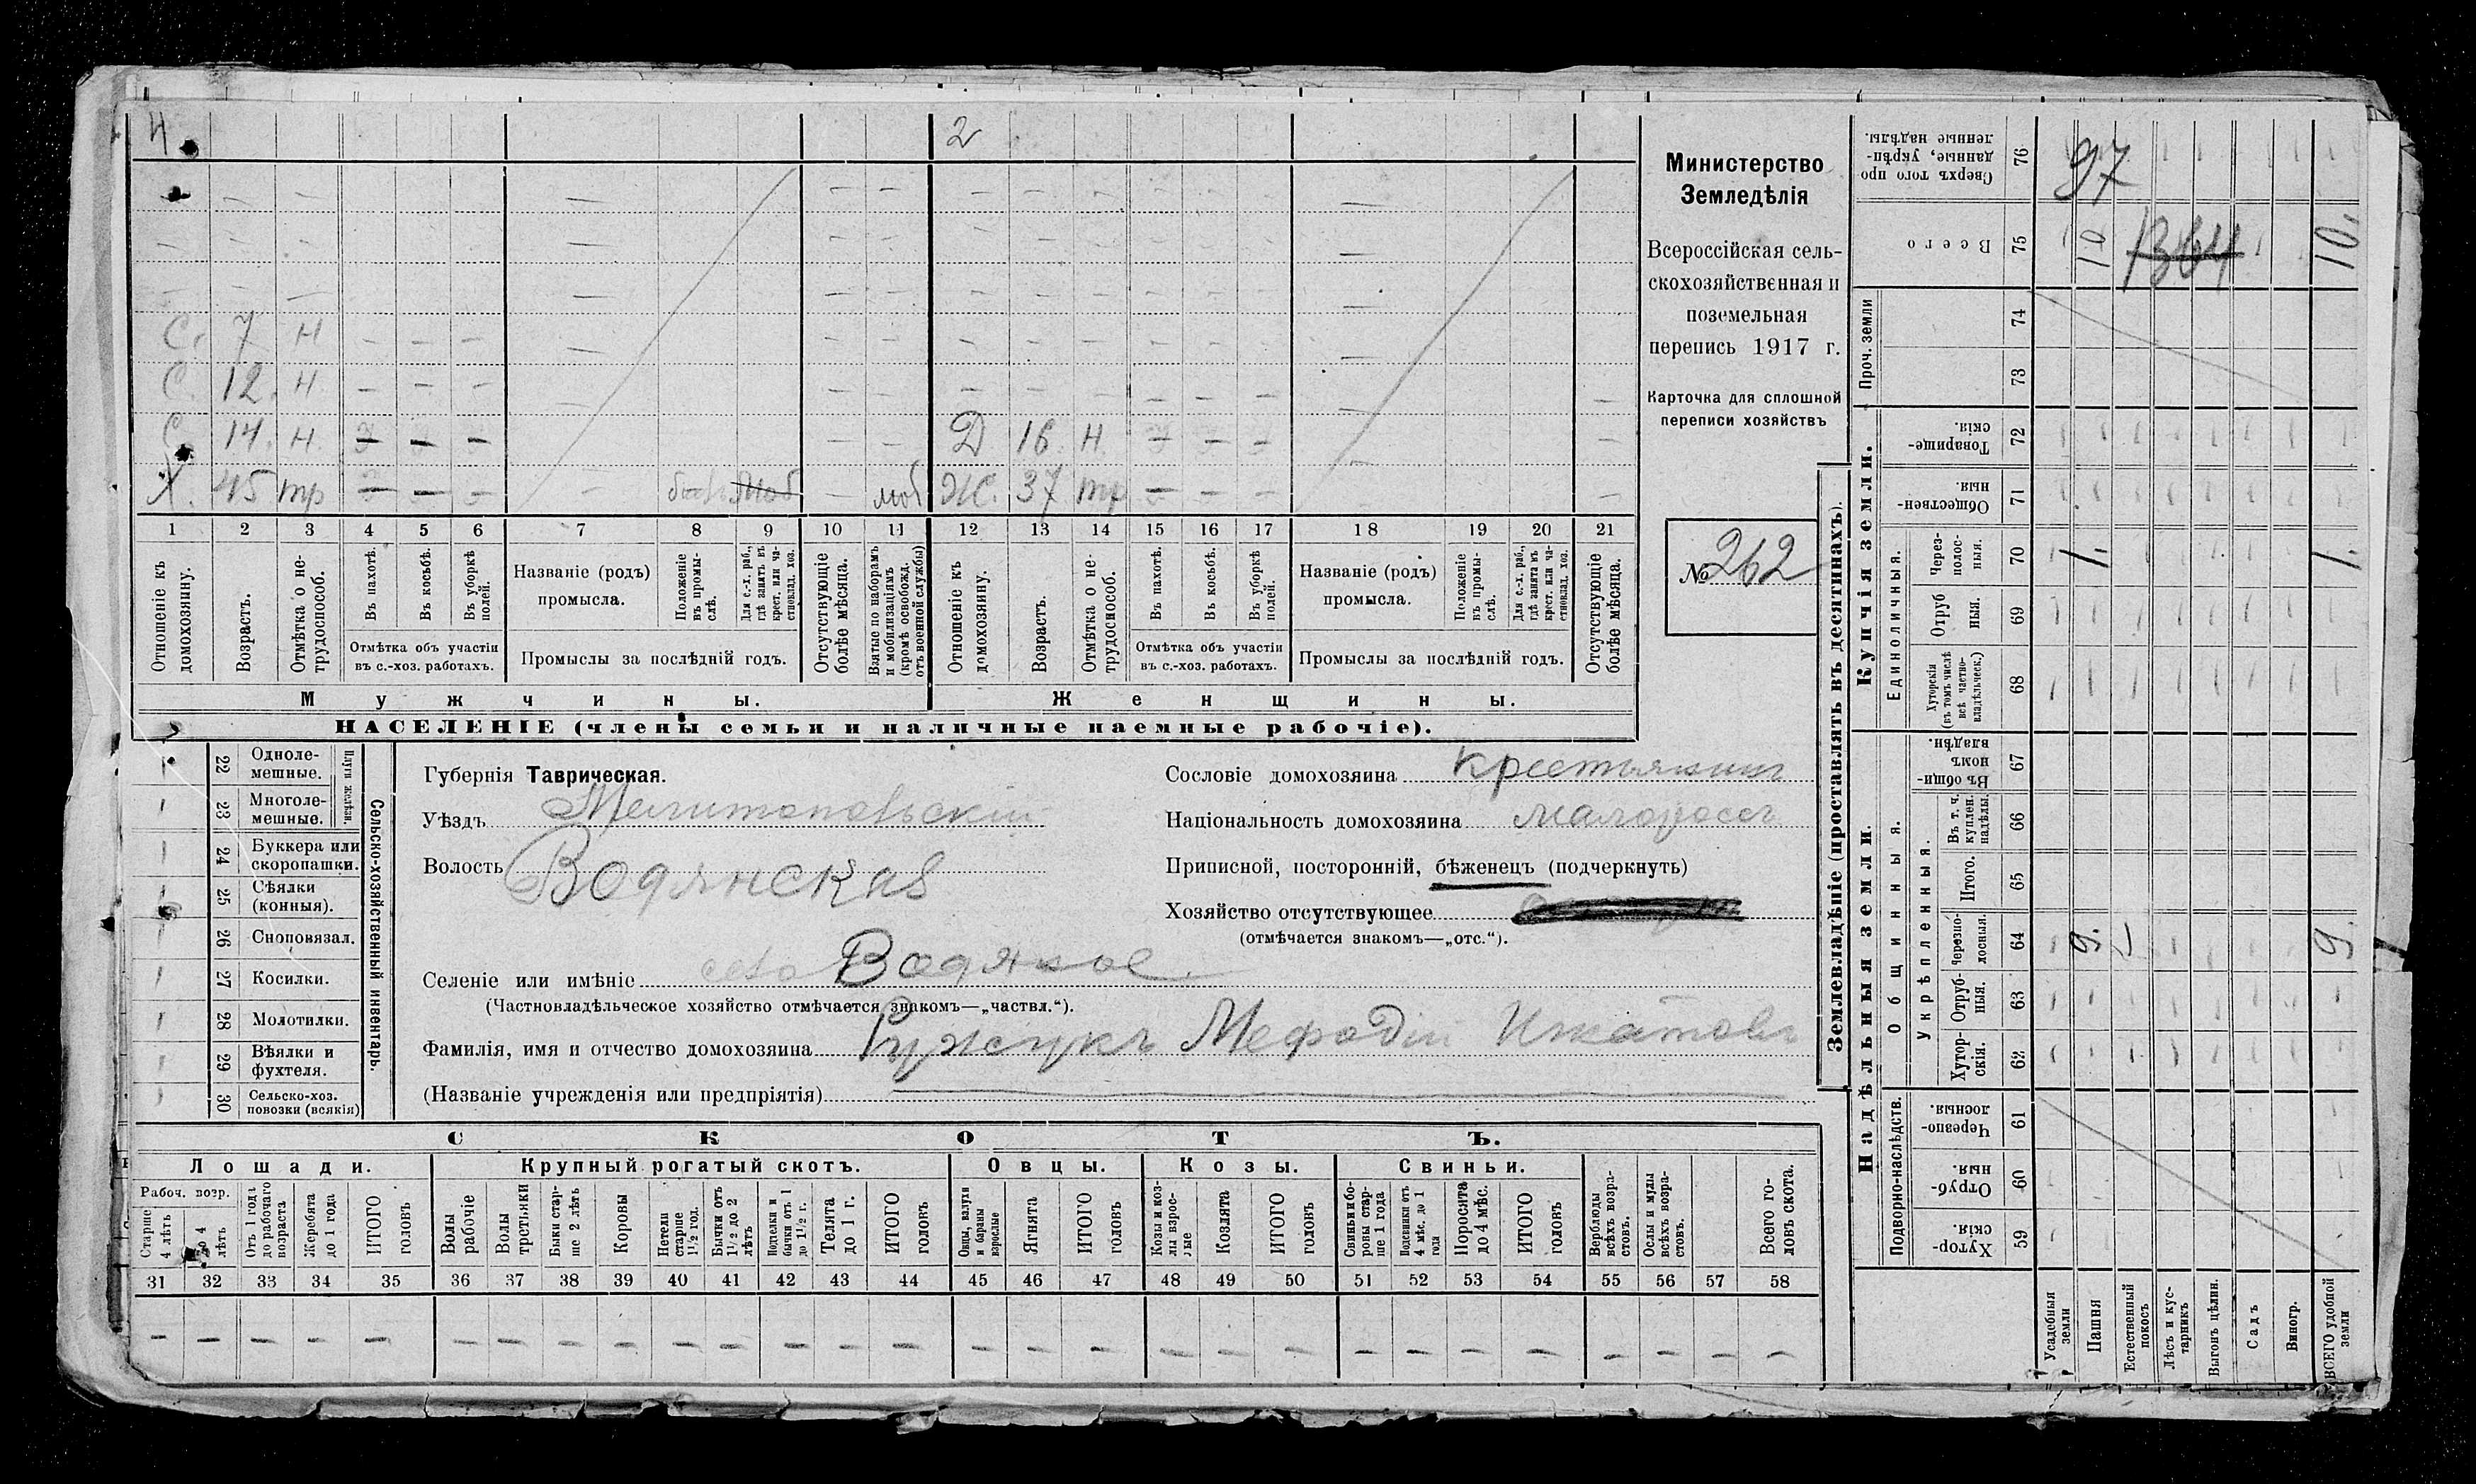 4. 2
С. 7 Н
С. 12. Н.
С. 14. Н. Д 16 Н.
Х. 45 тр моб моб Ж. 37 тр
1 2 3 4 5 6 7 8 9 10 11 12 13 14 15 16 17 18 19 20 21
Отношеніе къ домохозяину.
Возрастъ.
Отмѣтка о не-
трудоспособ.
Въ пахотѣ.
Въ косьбѣ.
Въ уборкѣ
полей.
Отмѣтка объ участіи
въ с.-хоз. работахъ.
Названіе (родъ)
промысла.
Положеніе
въ промы-
слѣ.
Для с.-х. раб.,
гдѣ занятъ въ
крест. или ча-
стновлад. хоз.
Промыслы за послѣдній годъ.
Отсутствующіе
болѣе мѣсяца.
Взятые по наборамъ
и мобилизаціямъ
(кромѣ освобожд.
отъ военной службы)
Отношеніе къ
домохозяину.
Возрастъ.
Отмѣтка о не-
трудоспособ.
Въ пахотѣ.
Въ косьбѣ.
Въ уборкѣ
полей.
Отмѣтка объ участіи
въ с.-хоз. работахъ.
Названіе (родъ)
промысла.
Положеніе
въ промы-
слѣ.
Для с.-х. раб.,
гдѣ занятъ въ
крест. или ча-
стновлад. хоз.
Промыслы за послѣдній годъ.
Отсутствующіе
болѣе мѣсяца.
Мужчины. Женщины.
НАСЕЛЕНІЕ (члены семьи и наличные наемные рабочіе).
Министерство
Земледѣлія
Всероссійская сель-
скохозяйственная и
поземельная
перепись 1917 г.
Карточка для сплошной
переписи хозяйствъ
№ 262
22 Одноле-
мешные.
23 Многоле-
мешные.
Плуги желѣзн.
24 Буккера или
скоропашки.
25 Сѣялки
(конныя).
26 Сноповязал.
27 Косилки.
28 Молотилки.
29 Вѣялки и
фухтеля.
30 Сельско-хоз.
повозки (всякія)
Сельско-хозяйственный инвентарь.
Губернія Таврическая.
Уѣздъ Мелитопольскій
Волость Водянская
Сословіе домохозяина крестьянинъ
Національность домохозяина малороссъ
Приписной, посторонній, бѣженецъ (подчеркнуть)
Хозяйство отсутствующее
(отмѣчается знакомъ—„отс.“).
Селеніе или имѣніе село Водяное.
(Частновладѣльческое хозяйство отмѣчается знакомъ—„частвл.“).
Фамилія, имя и отчество домохозяина Мефодій
(Названіе учрежденія или предпріятія)
СКОТЪ.
Лошади. Крупный рогатый скотъ. Овцы. Козы. Свиньи.
Рабоч. возр.
Старше
4 лѣтъ
До 4
лѣтъ
Отъ 1 года
до рабочаго
возраста
Жеребята
до 1 года
ИТОГО
головъ
Волы
рабочіе
Волы
третьяки
Быки стар-
ше 2 лѣтъ
Коровы
Нетели
старше
1½ год.
Бычки отъ
1½ до 2
лѣтъ
Подтелки и
бычки отъ 1
до 1½ г.
Телята
до 1 г.
ИТОГО
головъ
Овцы, валухи
и бараны
взрослые
Ягнята
ИТОГО
головъ
Козы и коз-
лы взрос-
лые
Козлята
ИТОГО
головъ
Свиньи и бо-
ровы стар-
ше 1 года
Подсвинки отъ
4 мѣс. до 1
года
Поросята
до 4 мѣс.
ИТОГО
головъ
Верблюды
всѣхъ возра-
стовъ.
Ослы и мулы
всѣхъ возра-
стовъ.
Всего го-
ловъ скота.
31 32 33 34 35 36 37 38 39 40 41 42 43 44 45 46 47 48 49 50 51 52 53 54 55 56 57 58
Землевладѣніе (проставлять въ десятинахъ).
Сверхъ того про
данные, укрѣп-
ленные надѣлы.
76 97
Всего 75 10 1364 10.
Проч. земли
74
73
Купчія земли.
Товарище-
скія.
72
Обществен-
ныя.
71
Единоличныя.
Через-
полос-
ныя.
70 1. 1.
Отруб
ныя.
69
Хуторскія
(въ томъ числѣ
всѣ частно-
владѣльческ.)
68
Надѣльныя земли.
Общинныя.
Въ общи-
номъ
владѣн.
67
Укрѣпленныя.
Въ т. ч.
куплен.
надѣлы.
66
Итого. 65
Черезпо-
лосныя.
64 9. 9.
Отруб-
ныя.
63
Хутор-
скія.
62
Подворно-наслѣдств.
Черезпо-
лосныя.
61
Отруб-
ныя.
60
Хутор-
скія.
59
Усадебныя
земли
Пашня
Естественный
покосъ
Лѣсъ и кус-
тарникъ
Выгонъ цѣлин.
Садъ
Виногр.
ВСЕГО удобной
земли